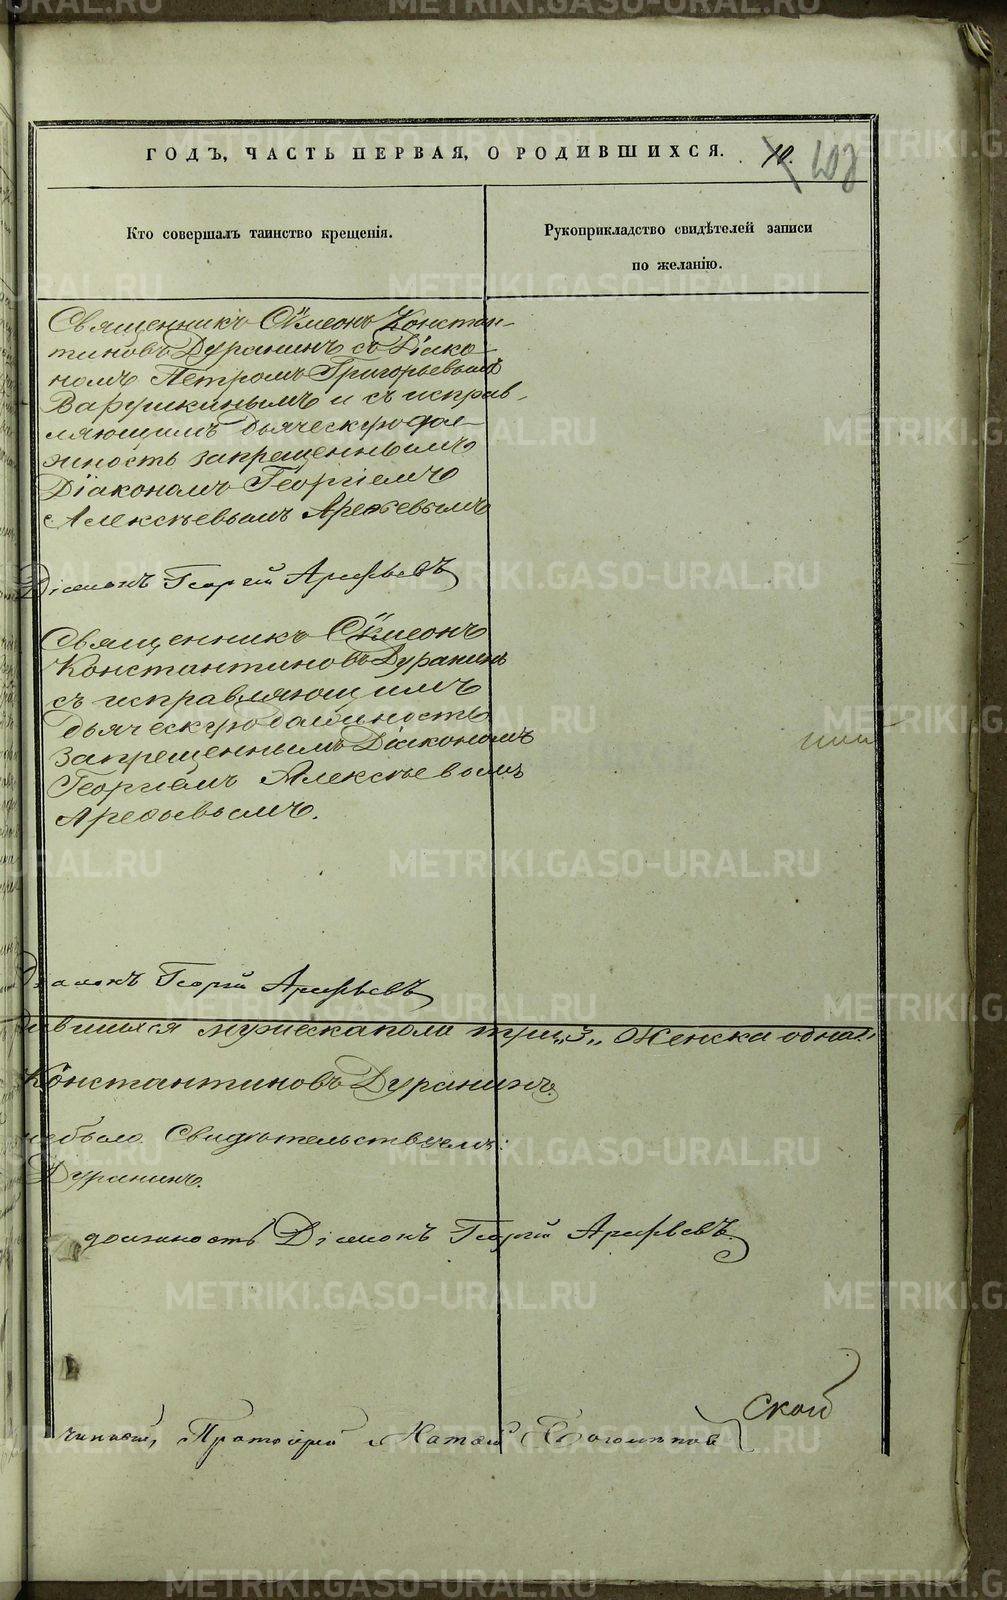 ГОДЪ, ЧАСТЬ ПЕРВАЯ, О РОДИВШИХСЯ. 10.
Кто совершалъ таинство крещенія.
Рукоприкладство свидѣтелей записи
по желанію.
Священникъ Сѵмеонъ Констан-
тиновъ Дуранинъ съ Діако-
номъ Петромъ Григорьевымъ
и съ исправ-
ляющимъ дьяческую дол-
жность запрещеннымъ
Діакономъ Георгіемъ
Алексѣевымъ Арефьевымъ
Діаконъ Георгій Арефьевъ
Священникъ Сѵмеонъ
Константиновъ Дуранинъ
съ исправляющимъ
дьяческую должность
запрещеннымъ Діакономъ
Георгіемъ Алексѣевымъ
Арефьевымъ.
Діаконъ Георгій Арефьевъ
мужеска пола три „3„ Женска одна
Константиновъ Дуранинъ.
небыло. Свидѣтельствуемъ:
Дуранинъ.
должность Діаконъ Георгій Арефьевъ
Протоіерей
METRIKI.GASO-URAL.RU